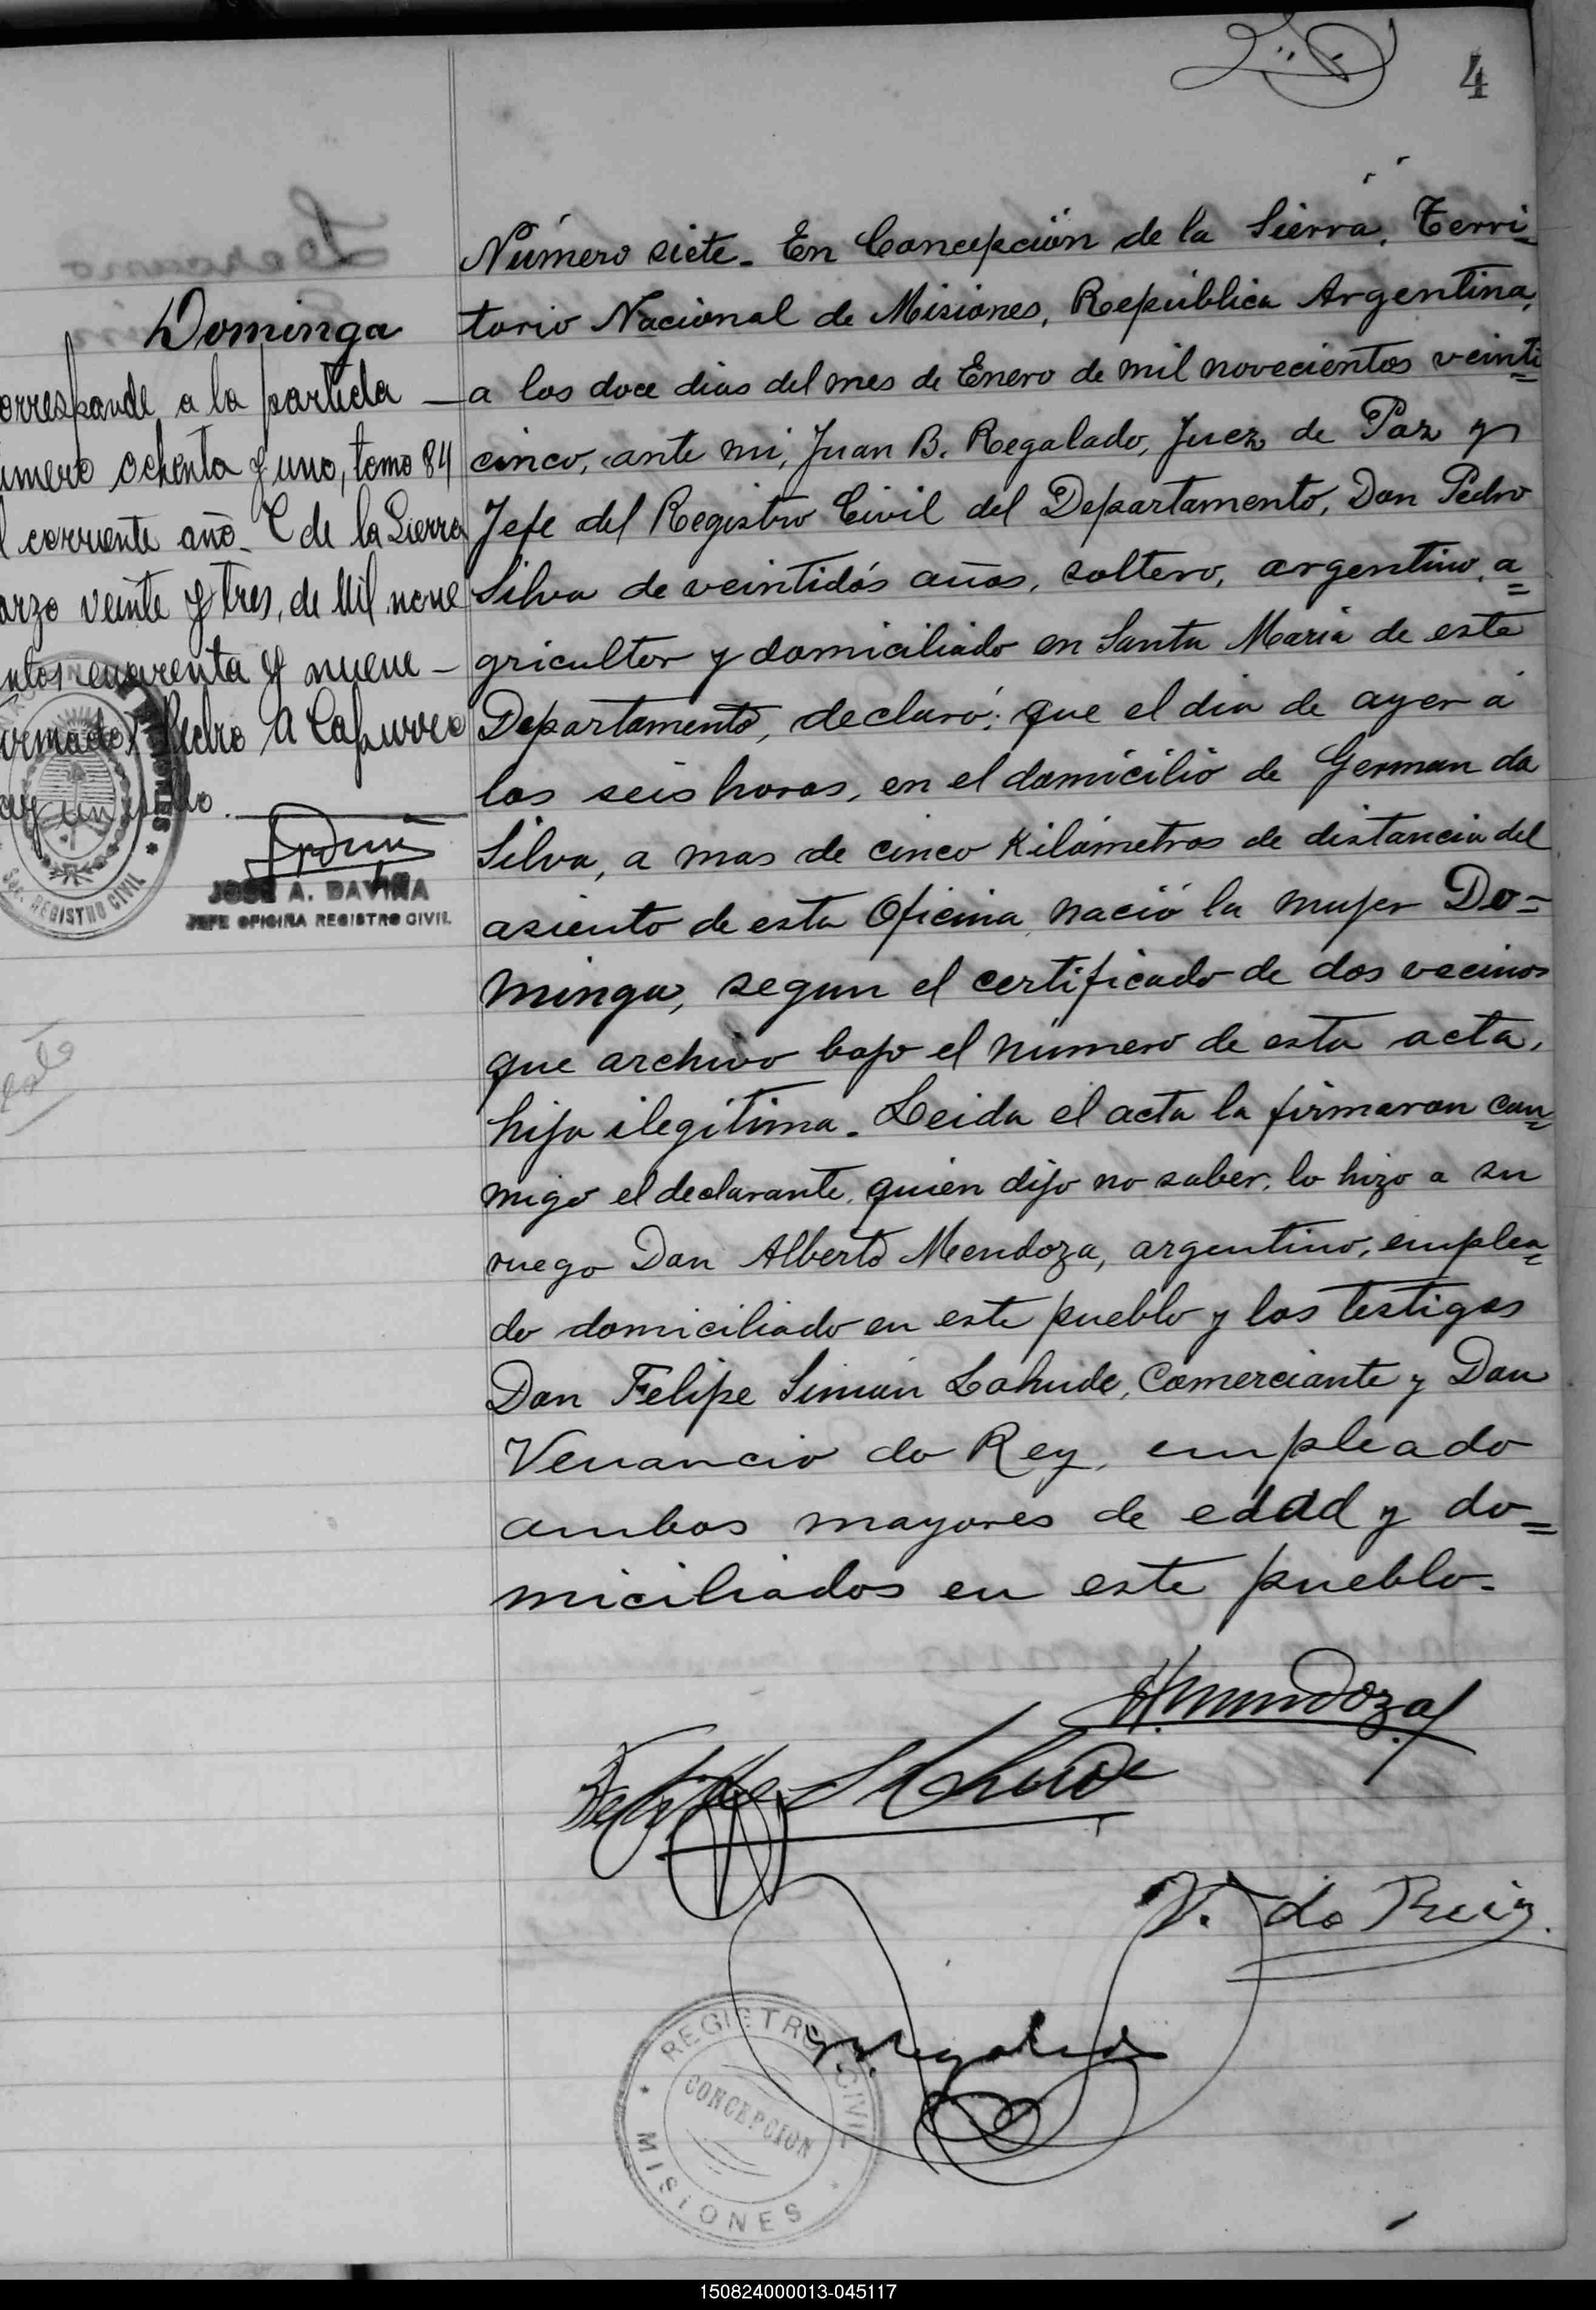 4
Número siete. En Concepción de la Sierra, Terri-
torio Nacional de Misiones, República Argentina,
a los doce dias del mes de Enero de mil novecientos veinti=
cinco, ante mi, Juan B. Regalado, Juez de Paz y
Jefe del Registro Civil del Departamento, Don Pedro
Silva de veintidós años, soltero, argentino, a=
gricultor y domiciliado en Santa Maria de este
Departamento, declaró: que el dia de ayer á
las seis horas, en el domicilio de German da
Silva, a mas de cinco Kilómetros de distancia del
asiento de esta Oficina, nació la mujer Do=
minga, segun el certificado de dos vecinos
que archivo bajo el número de esta acta,
hija ilegítima. Leida el acta la firmaron con=
migo el declarante, quien dijo no saber, lo hizo a su
ruego Don Alberto Mendoza, argentino, emplea=
do domiciliado en este pueblo y los testigos
Don Felipe Simón Lahude, Comerciante y Don
Venancio do Rey, empleado
ambos mayores de edad y do=
miciliados en este pueblo.
Dominga
orresponde a la partida
úmero ochenta y uno, tomo 84
l corriente año. C de la Sierra
arzo veinte y tres, de Mil nove
ntos cuarenta y nueve
irmado Pedro A Capurro
ay un sello.
JOSE A. DAVIÑA
JEFE OFICINA REGISTRO CIVIL
REGISTRO CIVIL
A. Mendoza
Felipe S Lahude
V. do Rey
Regalado
REGISTRO CIVIL
CONCEPCION
MISIONES
150824000013-045117